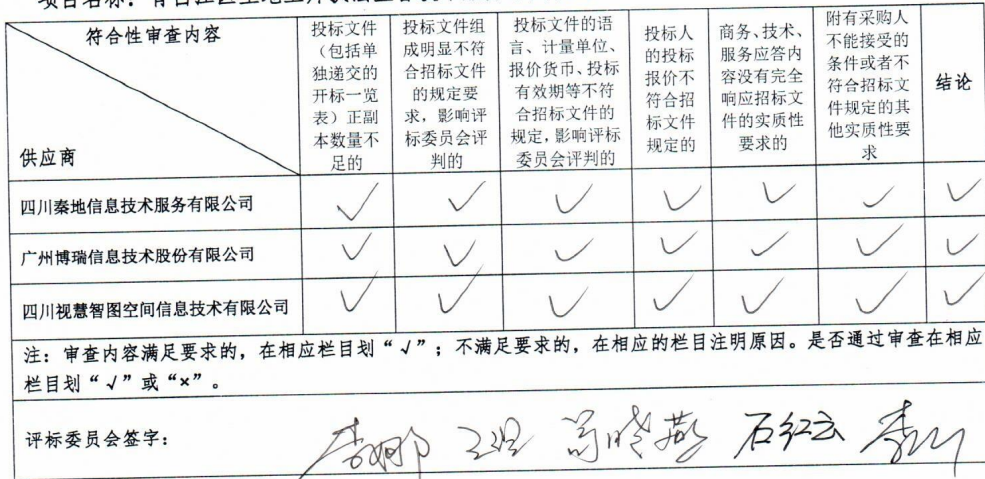 符合性审查内容
供应商
投标文件
（包括单
独递交的
开标一览
表）正副
本数量不
足的
投标文件组
成明显不符
合招标文件
的规定要
求，影响评
标委员会评
判的
投标文件的语
言、计量单位、
报价货币、投标
有效期等不符
合招标文件的
规定，影响评标
委员会评判的
投标人
的投标
报价不
符合招
标文件
规定的
商务、技术、
服务应答内
容没有完全
响应招标文
件的实质性
要求的
附有采购人
不能接受的
条件或者不
符合招标文
件规定的其
他实质性要
求
结论
四川秦地信息技术服务有限公司 √ √ √ √ √ √ √
广州博瑞信息技术股份有限公司 √ √ √ √ √ √ √
四川视慧智图空间信息技术有限公司 √ √ √ √ √ √ √
注：审查内容满足要求的，在相应栏目划“√”；不满足要求的，在相应的栏目注明原因。是否通过审查在相应
栏目划“√”或“×”。
评标委员会签字： 李娜 石红云